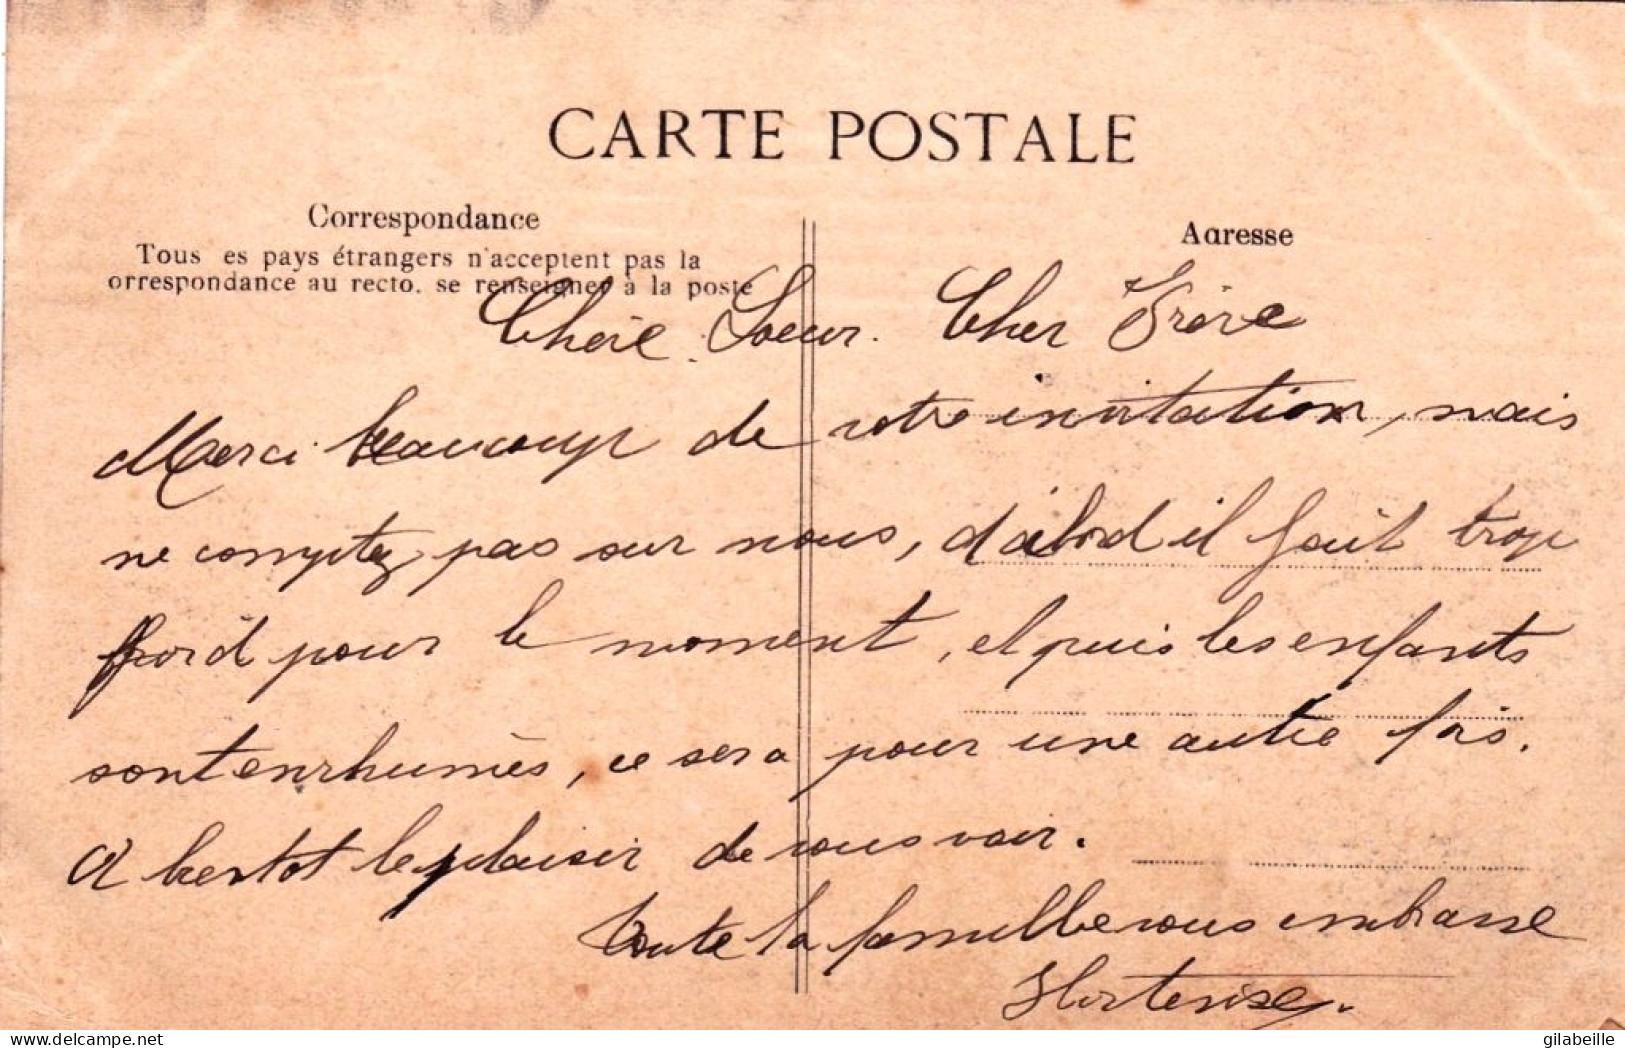 CARTE POSTALE
Correspondance
Adresse
Tous es pays étrangers n'acceptent pas la
orrespondance au recto. se renseigner à la poste
Chère Soeur. Cher Frère
Merci beaucoup de votre invitation, mais
ne comptez pas sur nous, d'abord il fait trop
froid pour le moment, et puis les enfants
sont enrhumés, ce sera pour une autre fois.
A bientot le plaisir de vous voir.
Toute la famille vous embrasse
Hortense.
gilabeille